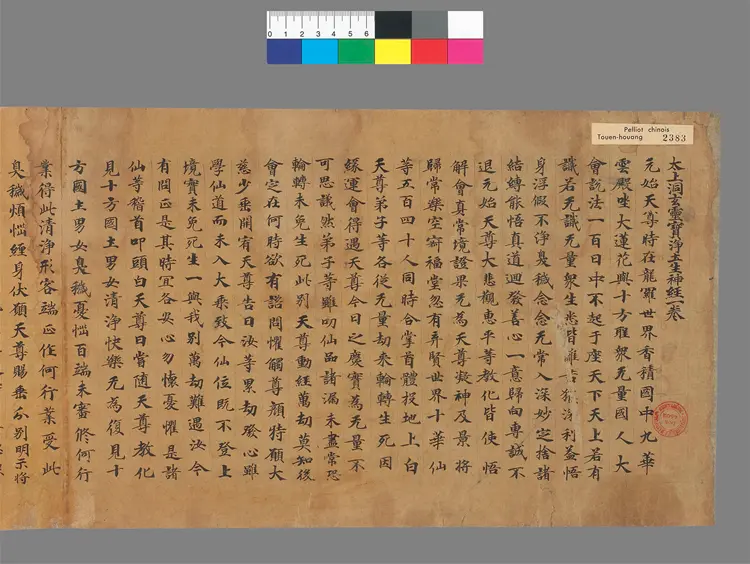 Pelliot chinois
Touen-houang 2383
0 1 2 3 4 5 6
太上洞玄靈寶淨土生神經一卷
元始天尊時在龍羅世界香積國中九華
雲殿坐大蓮花與十方聖衆无量國人大
會說法一百日中不起于座天下天上若有
識若无識无量衆生悉皆離苦獲濟利益悟
身浮假不淨臭穢念念无常入深妙定捨諸
結縛能悟真道迴發善心一意歸向專誠不
退元始天尊大悲觀惠平等教化皆使悟
解會真常境證果无為天尊凝神及景將
歸常樂室寂福堂忽有弄賢世界十華仙
等五百四十人同時合掌首體投地上白
天尊弟子等各從无量劫來輪轉生死因
緣運會得遇天尊今日之慶實為无量不
可思議然弟子等雖叨仙品諸漏未盡常恐
輪轉未免生死此別天尊動經萬劫莫知後
會定在何時欲有諮問懼觸尊顏特願大
慈少垂開宥天尊告曰汝等累劫發心雖
學仙道而未入大乘致令仙位既不登上
境實未免死生一與我別萬劫難遇汝今
有問正是其時宜各安心勿懷憂懼是諸
仙等稽首叩頭白天尊曰嘗隨天尊教化
見十方國土男女清淨快樂无為復見十
方國土男女臭穢憂惱百端未審修何行
業得此清淨形容端正作何行業受此
臭穢煩惱經身伏願天尊賜垂分別明示將